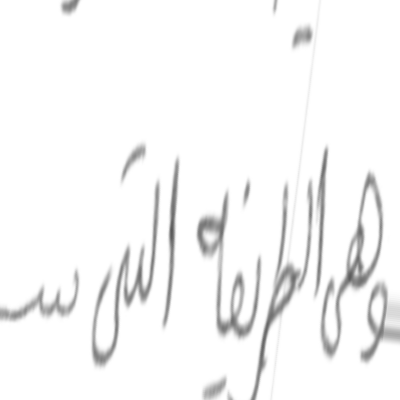 وهى الطريقة التى